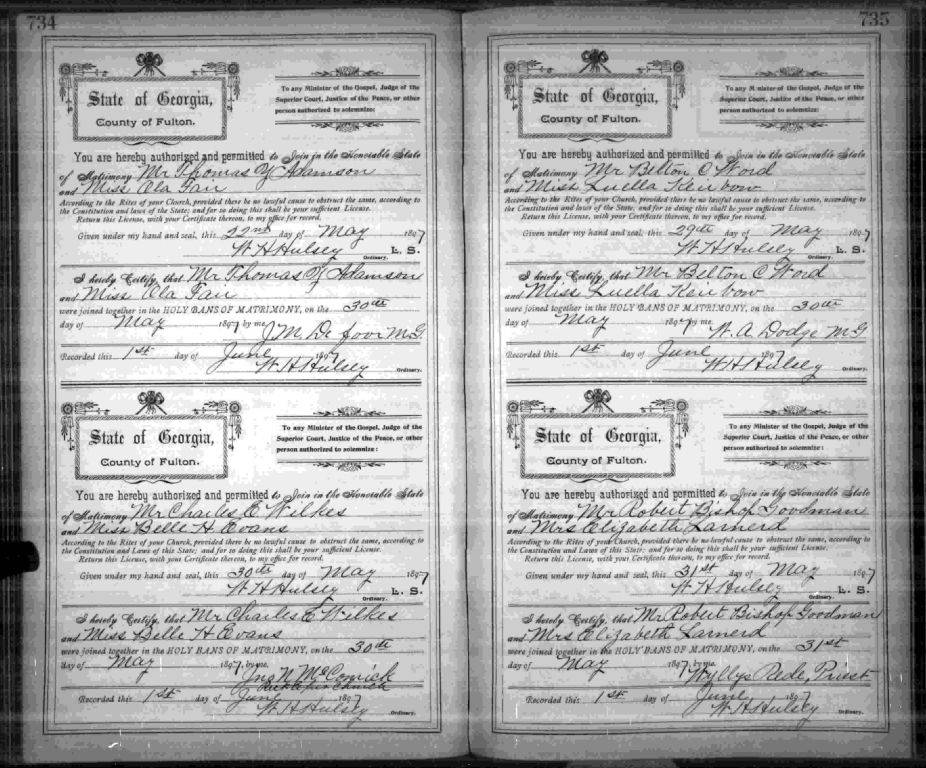 734
State of Georgia,
County of Fulton.
To any Minister of the Gospel, Judge of the
Superior Court, Justice of the Peace, or other
person authorized to solemnize:
You are hereby authorized and permitted to Join in the Honorable State
of Matrimony Mr Thomas Y Adamson
and Miss Ola Fair
According to the Rites of your Church, provided there be no lawful cause to obstruct the same, according to
the Constitution and laws of the State; and for so doing this shall be your sufficient License.
Return this License, with your Certificate thereon, to my office for record.
Given under my hand and seal, this 22nd day of May 1897
W H Hulsey L. S.
Ordinary.
I hereby Certify, that Mr Thomas Y Adamson
and Miss Ola Fair
were joined together in the HOLY BANS OF MATRIMONY, on the 30th
day of May 1897 by me,
J. M. De foor M.G.
Recorded this 1st day of June 1897
W H Hulsey
Ordinary.
State of Georgia,
County of Fulton.
To any Minister of the Gospel, Judge of the
Superior Court, Justice of the Peace, or other
person authorized to solemnize:
You are hereby authorized and permitted to Join in the Honorable State
of Matrimony Mr Charles E Wilkes
and Miss Belle H Evans
According to the Rites of your Church, provided there be no lawful cause to obstruct the same, according to
the Constitution and Laws of this State; and for so doing this shall be your sufficient License.
Return this License, with your Certificate thereon, to my office for record.
Given under my hand and seal, this 30th day of May 1897
W H Hulsey L. S.
Ordinary.
I hereby Certify, that Mr Charles E Wilkes
and Miss Belle H Evans
were joined together in the HOLY BANS OF MATRIMONY, on the 30th
day of May 1897, by me,
Jno N McCormick
Church
Recorded this 1st day of June 1897
W H Hulsey
Ordinary.
735
State of Georgia,
County of Fulton.
To any Minister of the Gospel, Judge of the
Superior Court, Justice of the Peace, or other
person authorized to solemnize:
You are hereby authorized and permitted to Join in the Honorable State
of Matrimony Mr Belton C Word
and Miss Luella
According to the Rites of your Church, provided there be no lawful cause to obstruct the same, according to
the Constitution and laws of the State; and for so doing this shall be your sufficient License.
Return this License, with your Certificate thereon, to my office for record.
Given under my hand and seal, this 29th day of May 1897
W H Hulsey L. S.
Ordinary.
I hereby Certify, that Mr Belton C Word
and Miss Luella
were joined together in the HOLY BANS OF MATRIMONY, on the 30th
day of May 1897 by me,
W. A. Dodge M G
Recorded this 1st day of June 1897
W H Hulsey
Ordinary.
State of Georgia,
County of Fulton.
To any Minister of the Gospel, Judge of the
Superior Court, Justice of the Peace, or other
person authorized to solemnize:
You are hereby authorized and permitted to Join in the Honorable State
of Matrimony Mr Robert Bishop Goodman
and Mrs Elizabeth Larnerd
According to the Rites of your Church, provided there be no lawful cause to obstruct the same, according to
the Constitution and Laws of this State; and for so doing this shall be your sufficient License.
Return this License, with your Certificate thereon, to my office for record.
Given under my hand and seal, this 31st day of May 1897
W H Hulsey L. S.
Ordinary.
I hereby Certify, that Mr Robert Bishop Goodman
and Mrs Elizabeth Larnerd
were joined together in the HOLY BANS OF MATRIMONY, on the 31st
day of May 1897 by me,
Wyllys Rede, Priest
Recorded this 1st day of June 1897
W H Hulsey
Ordinary.